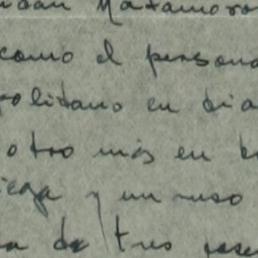 Matamoro
como el persona
politano en dia
otro más en
y un ruso
da tres